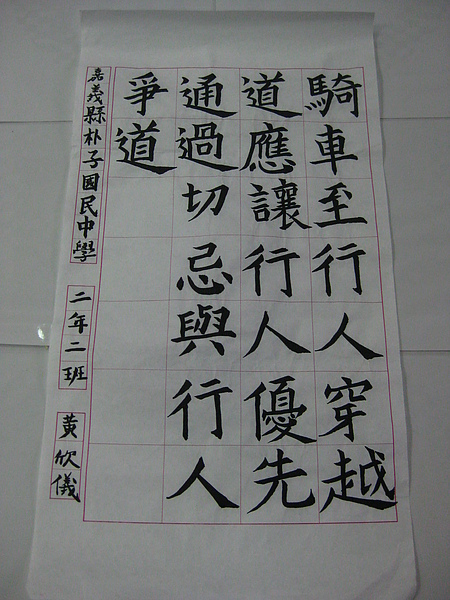 騎車至行人穿越
道應讓行人優先
通過切忌與行人
爭道
嘉義縣朴子國民中學 二年二班 黃欣儀